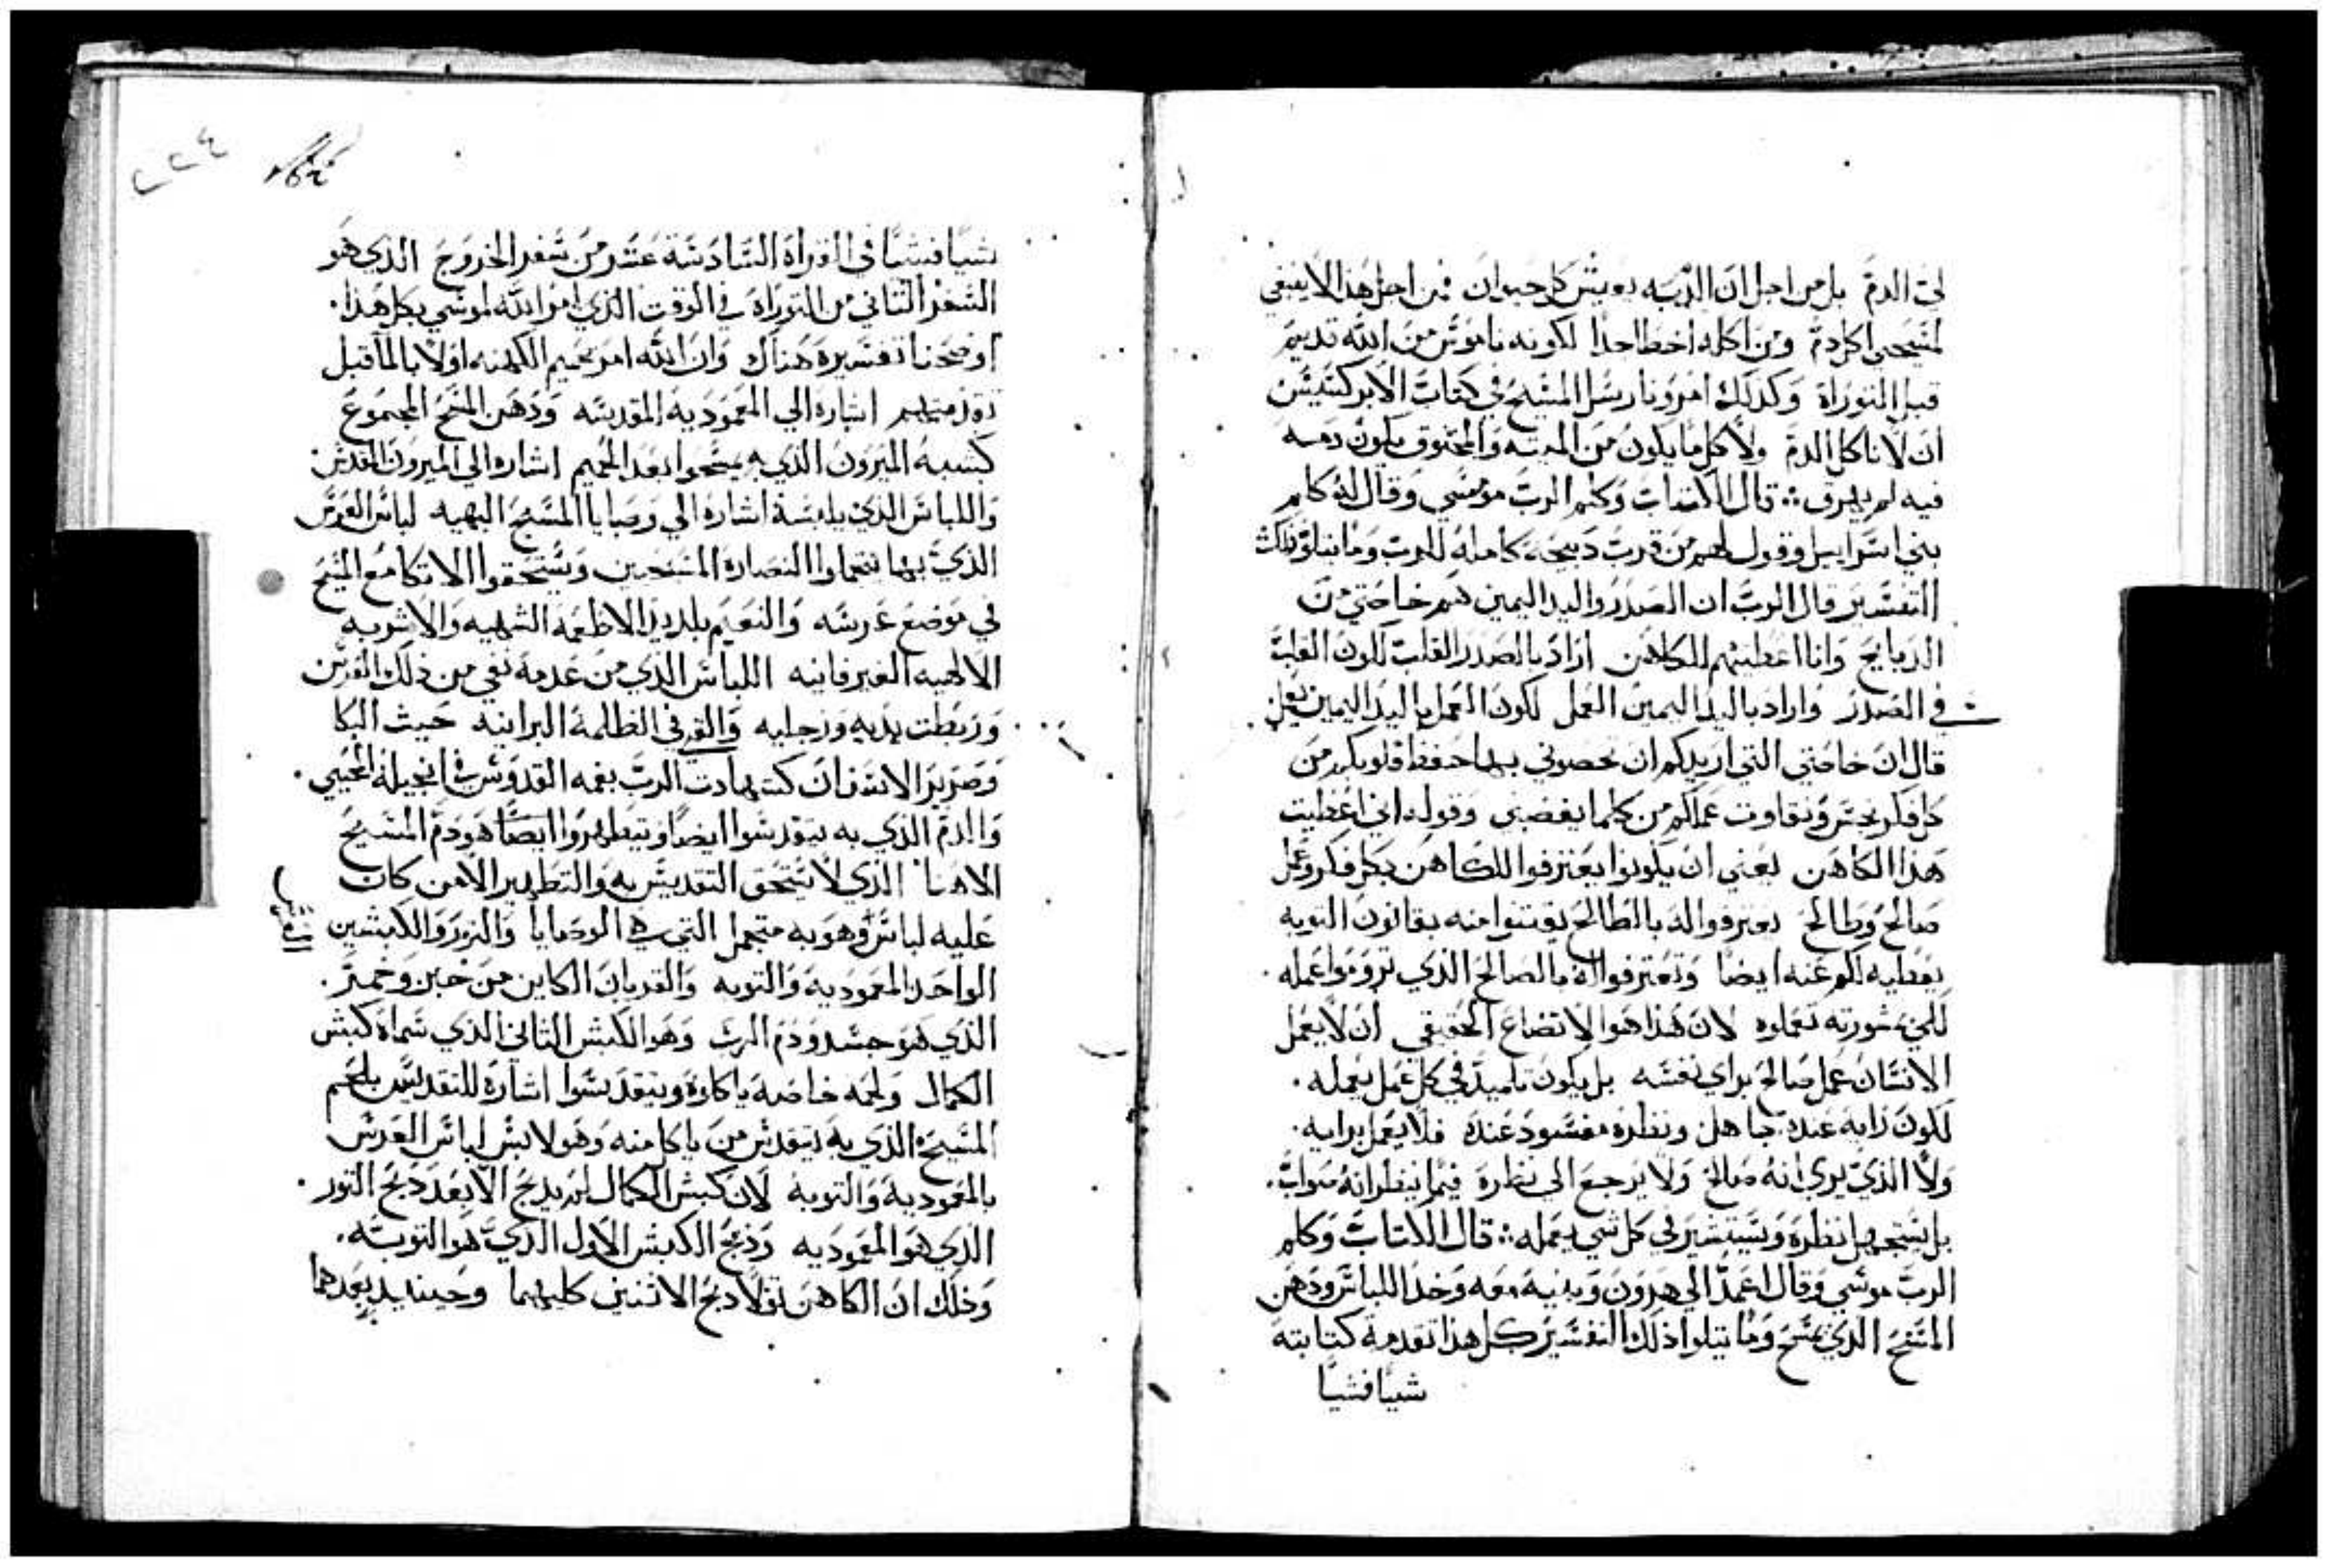 لحق الدم بل من اجل ان الدم به يعيش كل حيوان فمن اجل هذا لا ينبغي
لمسيحي اكل دم ومن اكله اخطا جدا لكونه ناموس من الله قديم
قبل التوراة وكذلك امرونا رسل المسيح في كتاب الابركسيس
ان لا ناكل الدم ولا كل ما يكون من الميته والمخنوق يكون دمه
فيه لم يهرق قال الكتاب وكلم الرب موسي وقال له كلم
بني اسراييل وقول لهم من قرب دبيحه كامله للرب وما يتلو ذلك
التفسير قال الرب ان الصدر واليد اليمين هم خاصتي من
الدبايح وانا اعطيتهم للكاهن اراد بالصدر القلب لكون القلب
في الصدر واراد باليد اليمين العمل لكون العمل باليد اليمين يعمل
قال ان خاصتي التي اريدكم ان تخصوني بها حفظ قلوبكم من
كل فكر نجس ونقاوت عملكم من كلما يغضبني وقوله اني اعطيت
هذا الكاهن يعني ان يكونوا يعترفوا للكاهن بكل فكر وعمل
صالح وطالح يعترفوا له بالطالح يقتنوا منه بقانون التوبه
يعطيه لكم عنه ايضا وتعترفوا له بالصالح الذي تروموا عمله
لكي بمشورته تعملوه لان هذا هو الاتضاع الحقيقي ان لا يعمل
الانسان عمل صالح براي نفسه بل يكون تلميذ في كل عمل يعمله
لكون رايه عنده جاهل ونظره مفسود عنده فلا يعمل برايه
ولا الذي يري انه صالح ولا يرجع الي نظره فيما ينظر انه صواب
بل يستجهل نظره ويستشير في كل شي يعمله قال الكتاب وكلم
الرب موسي وقال اعمد الي هرون وبنيه معه وخد اللباس ودهن
المسح الذي يمسح وما يتلوا ذلك التفسير كل هذا تقدمة كتابته
شيا فشيا
٢٢٤
شيا فشيا في القراة السادسة عشر من سفر الخروج الذي هو
السفر الثاني من التوراة في الوقت الذي امر الله لموسي بكل هذا
اوضحنا تفسيره هناك وان الله امر بحميم الكهنه اولا بالما قبل
تقدمتهم اشاره الي المعموديه المقدسه ودهن المسح المجموع
كشبه الميرون الذي به يمسحوا بعد الحميم اشاره الي الميرون المقدس
واللباس الذي يلبسه اشاره الي وصايا المسيح البهيه لباس العرس
الذي بها يتجملوا النصاره المسيحين ويستحقوا الاتكا مع المسيح
في موضع عرسه والتنعيم بلديد الاطعمه الشهيه والاشربه
الالهيه الغير فانيه اللباس الذي من عدمه نفي من ذلك العرس
وربطت يديه ورجليه والقي في الظلمه البرانيه حيث البكا
وصرير الاسنان كشهادت الرب بفمه القدوس في انجيله المحيي
والدم الذي به يتقدسوا ايضا ويتطهروا ايضا هو دم المسيح
الاهنا الذي لا يستحق التقديس به والتطهير الا من كان
عليه لباس وهو به متجمل التي هي الوصايا والثور والكبشين
الواحد المعموديه والتوبه والقربان الكاين من خبز وخمر
الذي هو جسد ودم الرب وهو الكبش الثاني الذي سماه كبش
الكمال ولحمه خاصه ياكلوه ويتقدسوا اشارة للتقديس بلحم
المسيح الذي به يتقدس من ياكل منه وهو لابس لباس العرس
بالمعموديه والتوبه لان كبش الكمال لم يدبح الا بعد دبح الثور
الذي هو المعموديه ودبح الكبش الاول الذي هو التوبه
وذلك ان الكاهن تولا دبح الاثنين كليهما وحينيد بعدهما